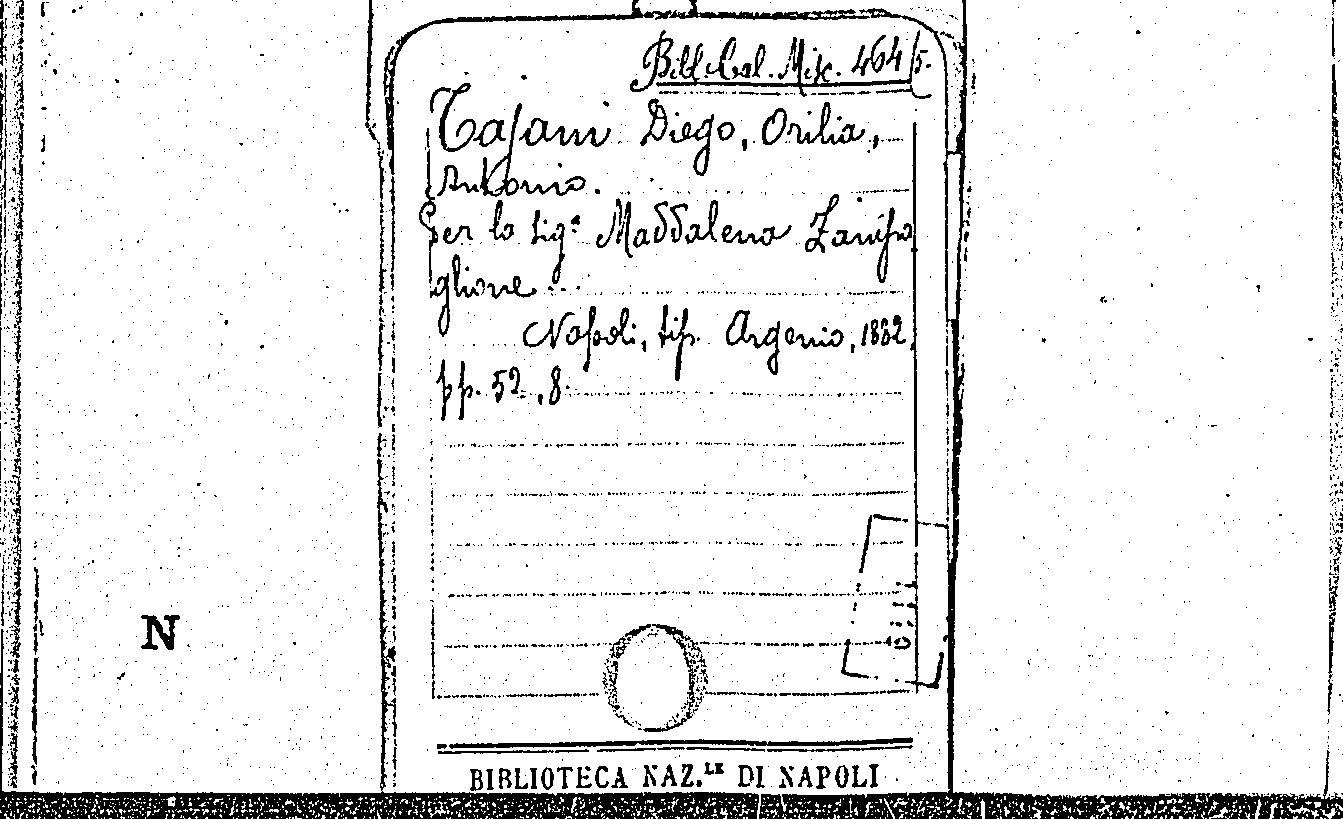 Bibl. Cal. Misc. 464/5.
Tajani Diego, Orilia,
Antonio.
Per la Sig.ª Maddalena Zampa
glione ...
Napoli, tip. Argenio, 1882.
pp. 52, 8.
N
BIBLIOTECA NAZ.LE DI NAPOLI